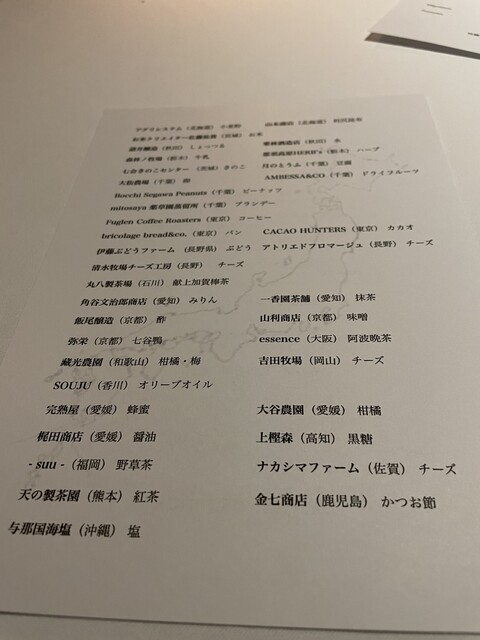 アグリシステム（北海道） 小麦粉　山本商店（北海道） 利尻昆布
お米クリエイター佐藤裕貴（宮城） お米
諸井醸造（秋田） しょっつる　栗林酒造店（秋田） 水
森林ノ牧場（栃木） 牛乳　那須高原HERB's（栃木） ハーブ
七会きのこセンター（茨城）きのこ　月のとうふ（千葉） 豆腐
大松農場（千葉） 卵　AMBESSA&CO（千葉） ドライフルーツ
Bocchi Segawa Peanuts（千葉） ピーナッツ
mitosaya 薬草園蒸留所（千葉） ブランデー
Fuglen Coffee Roasters（東京） コーヒー
bricolage bread&co.（東京） パン　CACAO HUNTERS（東京） カカオ
伊藤ぶどうファーム （長野県） ぶどう　アトリエドフロマージュ（長野） チーズ
清水牧場チーズ工房（長野） チーズ
丸八製茶場（石川） 献上加賀棒茶
角谷文治郎商店（愛知） みりん　一香園茶舗（愛知） 抹茶
飯尾醸造（京都） 酢　山利商店（京都） 味噌
弥栄（京都）七谷鴨　essence（大阪） 阿波晩茶
蔵光農園（和歌山） 柑橘・梅　吉田牧場（岡山） チーズ
SOUJU（香川） オリーブオイル
完熟屋（愛媛） 蜂蜜　大谷農園（愛媛） 柑橘
梶田商店（愛媛） 醤油　上樫森（高知） 黒糖
- suu -（福岡） 野草茶　ナカシマファーム（佐賀） チーズ
天の製茶園（熊本） 紅茶　金七商店（鹿児島） かつお節
与那国海塩（沖縄） 塩